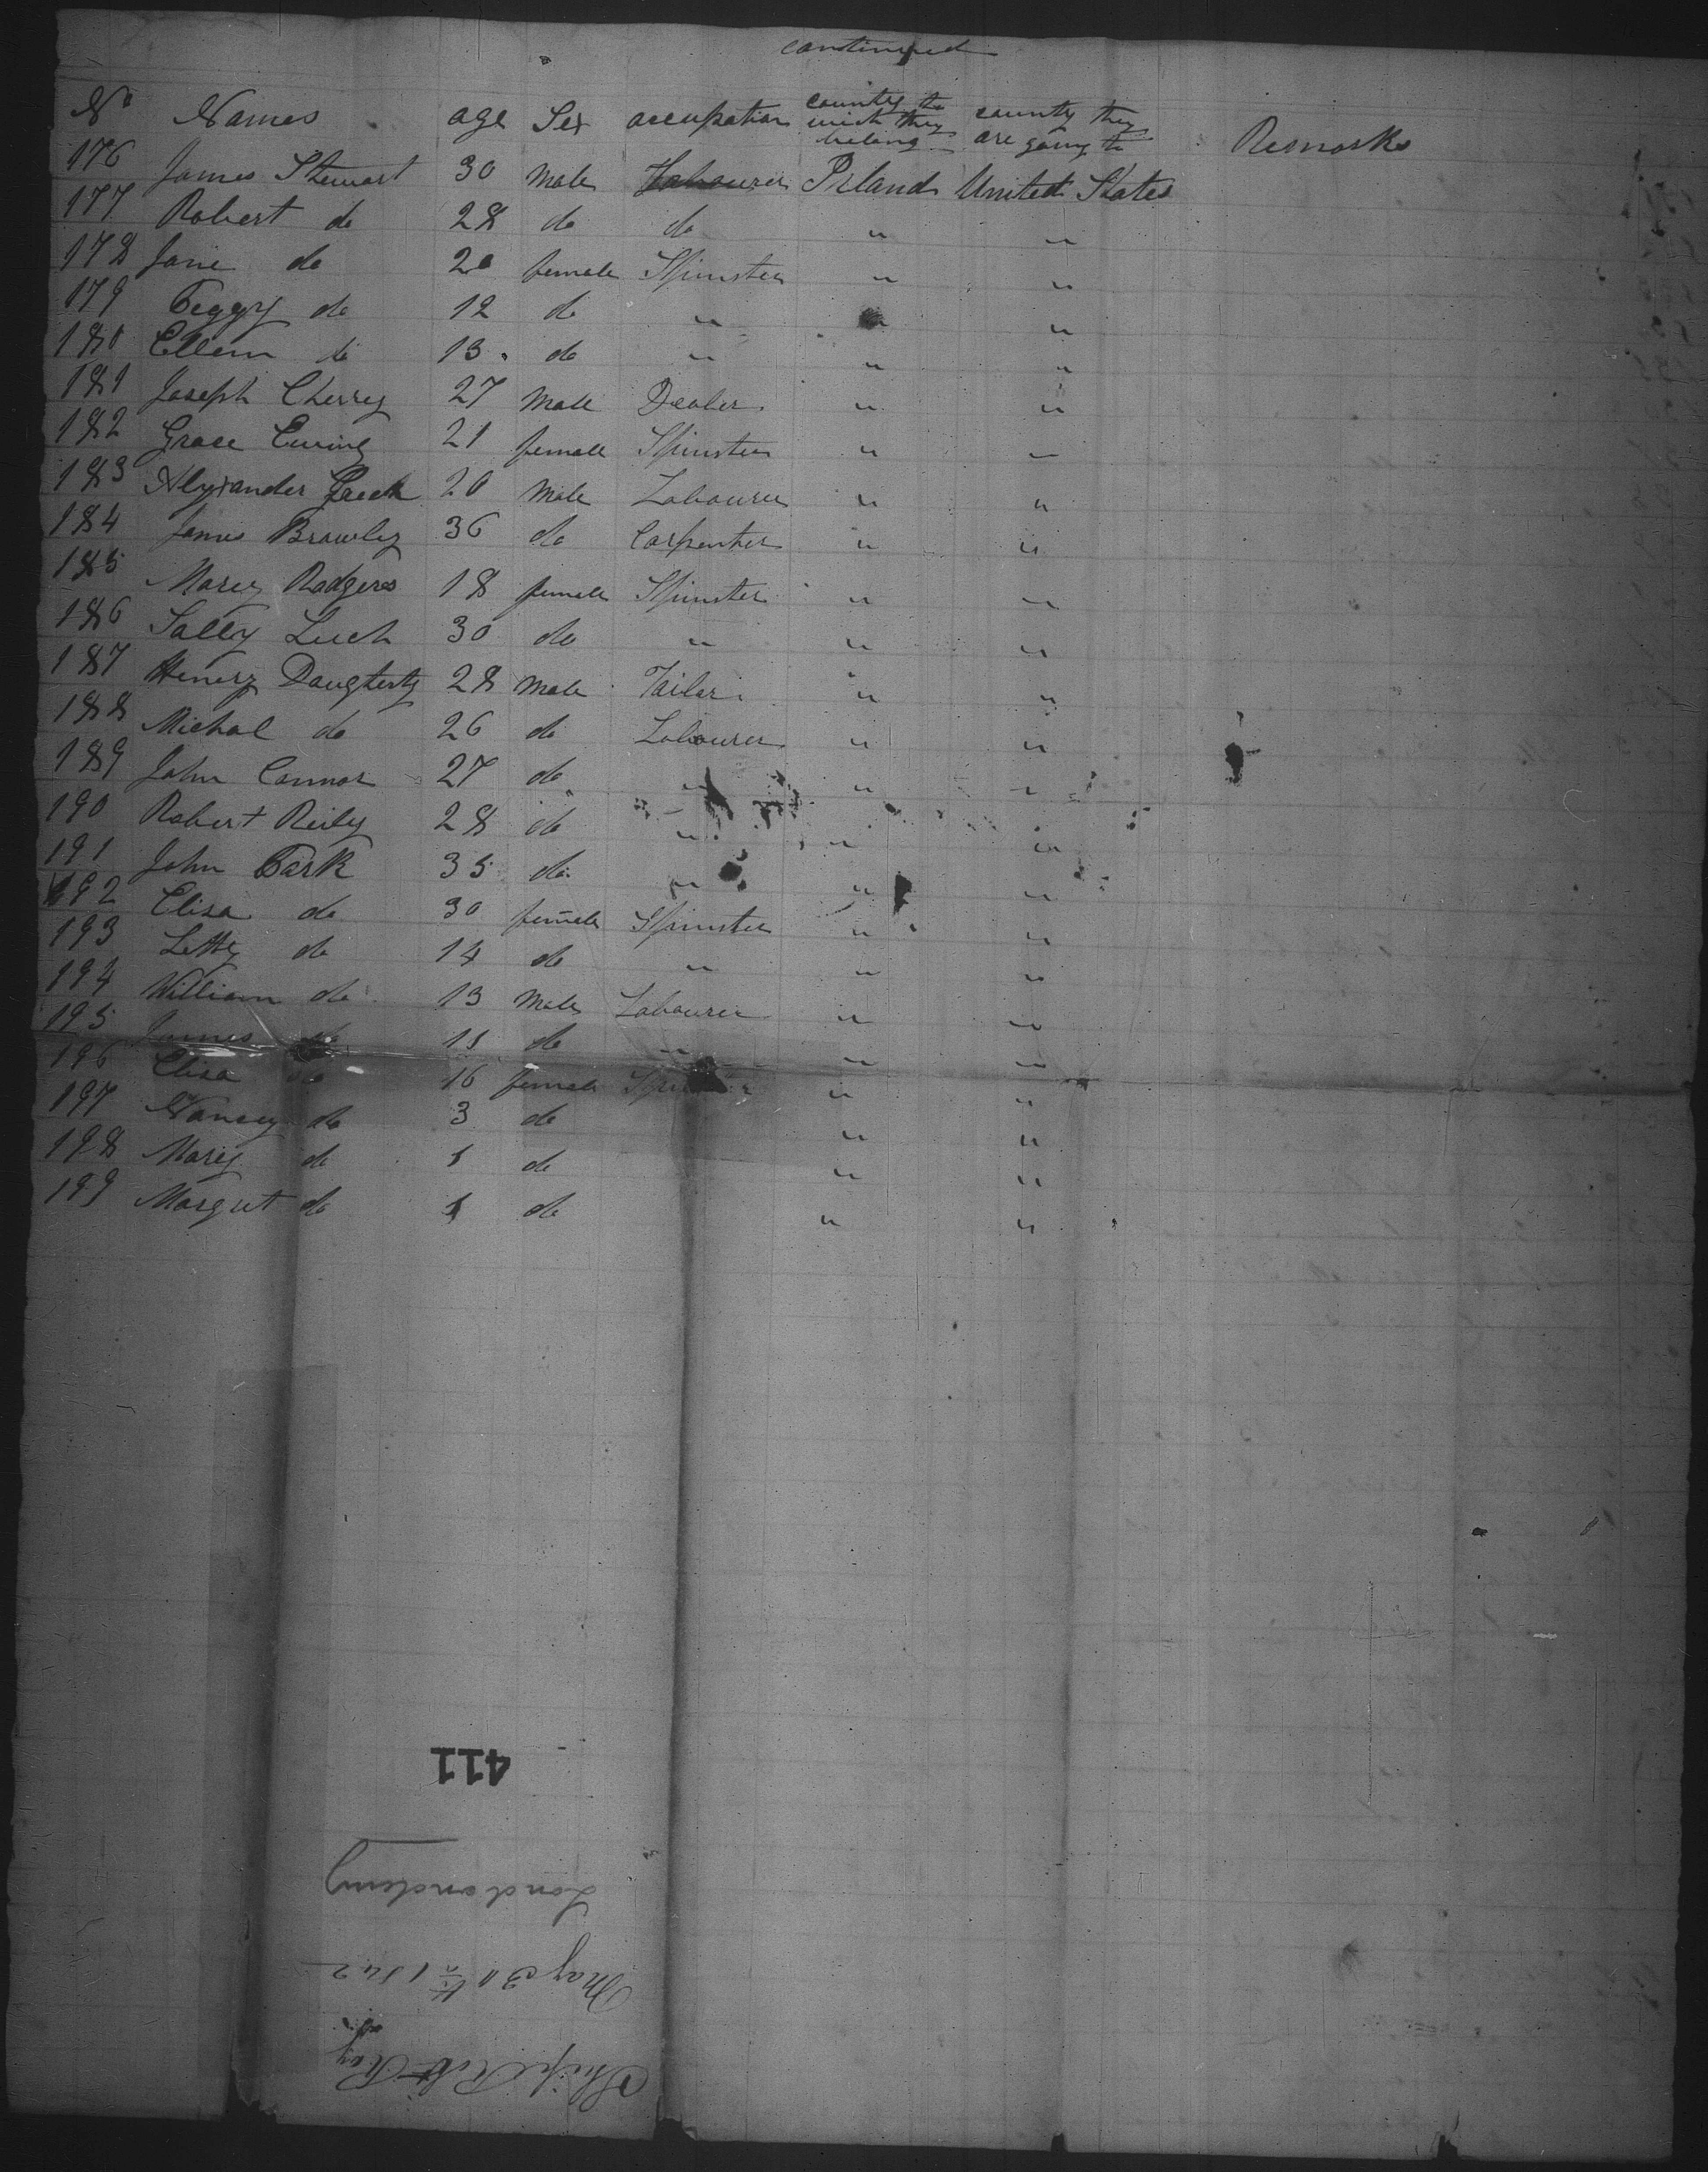 continued
No Names age Sex occupation country to wich they belong country they are going to Remarks
176 James Stewart 30 male Labourer Irland United States
177 Robert do 28 do do " "
178 Jane do 20 female Spinster " "
179 Peggy do 12 do " " "
180 Ellem do 13 do " " "
181 Joseph Cherry 27 male Dealer " "
182 Grace Ewing 21 female Spinster " "
183 Alyxander 20 male Labourer " "
184 James Brawley 36 do Carpenter " "
185 Marey Rodgers 18 female Spinster " "
186 Sally Luch 30 do " " "
187 Henery Daugherty 28 male Tailor " "
188 Michal do 26 do Labourer " "
189 John Connor 27 do " " "
190 Robert Reily 28 do " " "
191 John Park 35 do " " "
192 Elisa do 30 female Spinster " "
193 Letty do 14 do " " "
194 William do 13 male Labourer " "
195 James do 11 do " " "
196 Elisa do 16 female Spinster " "
197 Nancey do 3 do " "
198 Marey do 1 do " "
199 Margret do 1 do " "
411
Londonderry
May 30th 1842
Ship Robt Kay